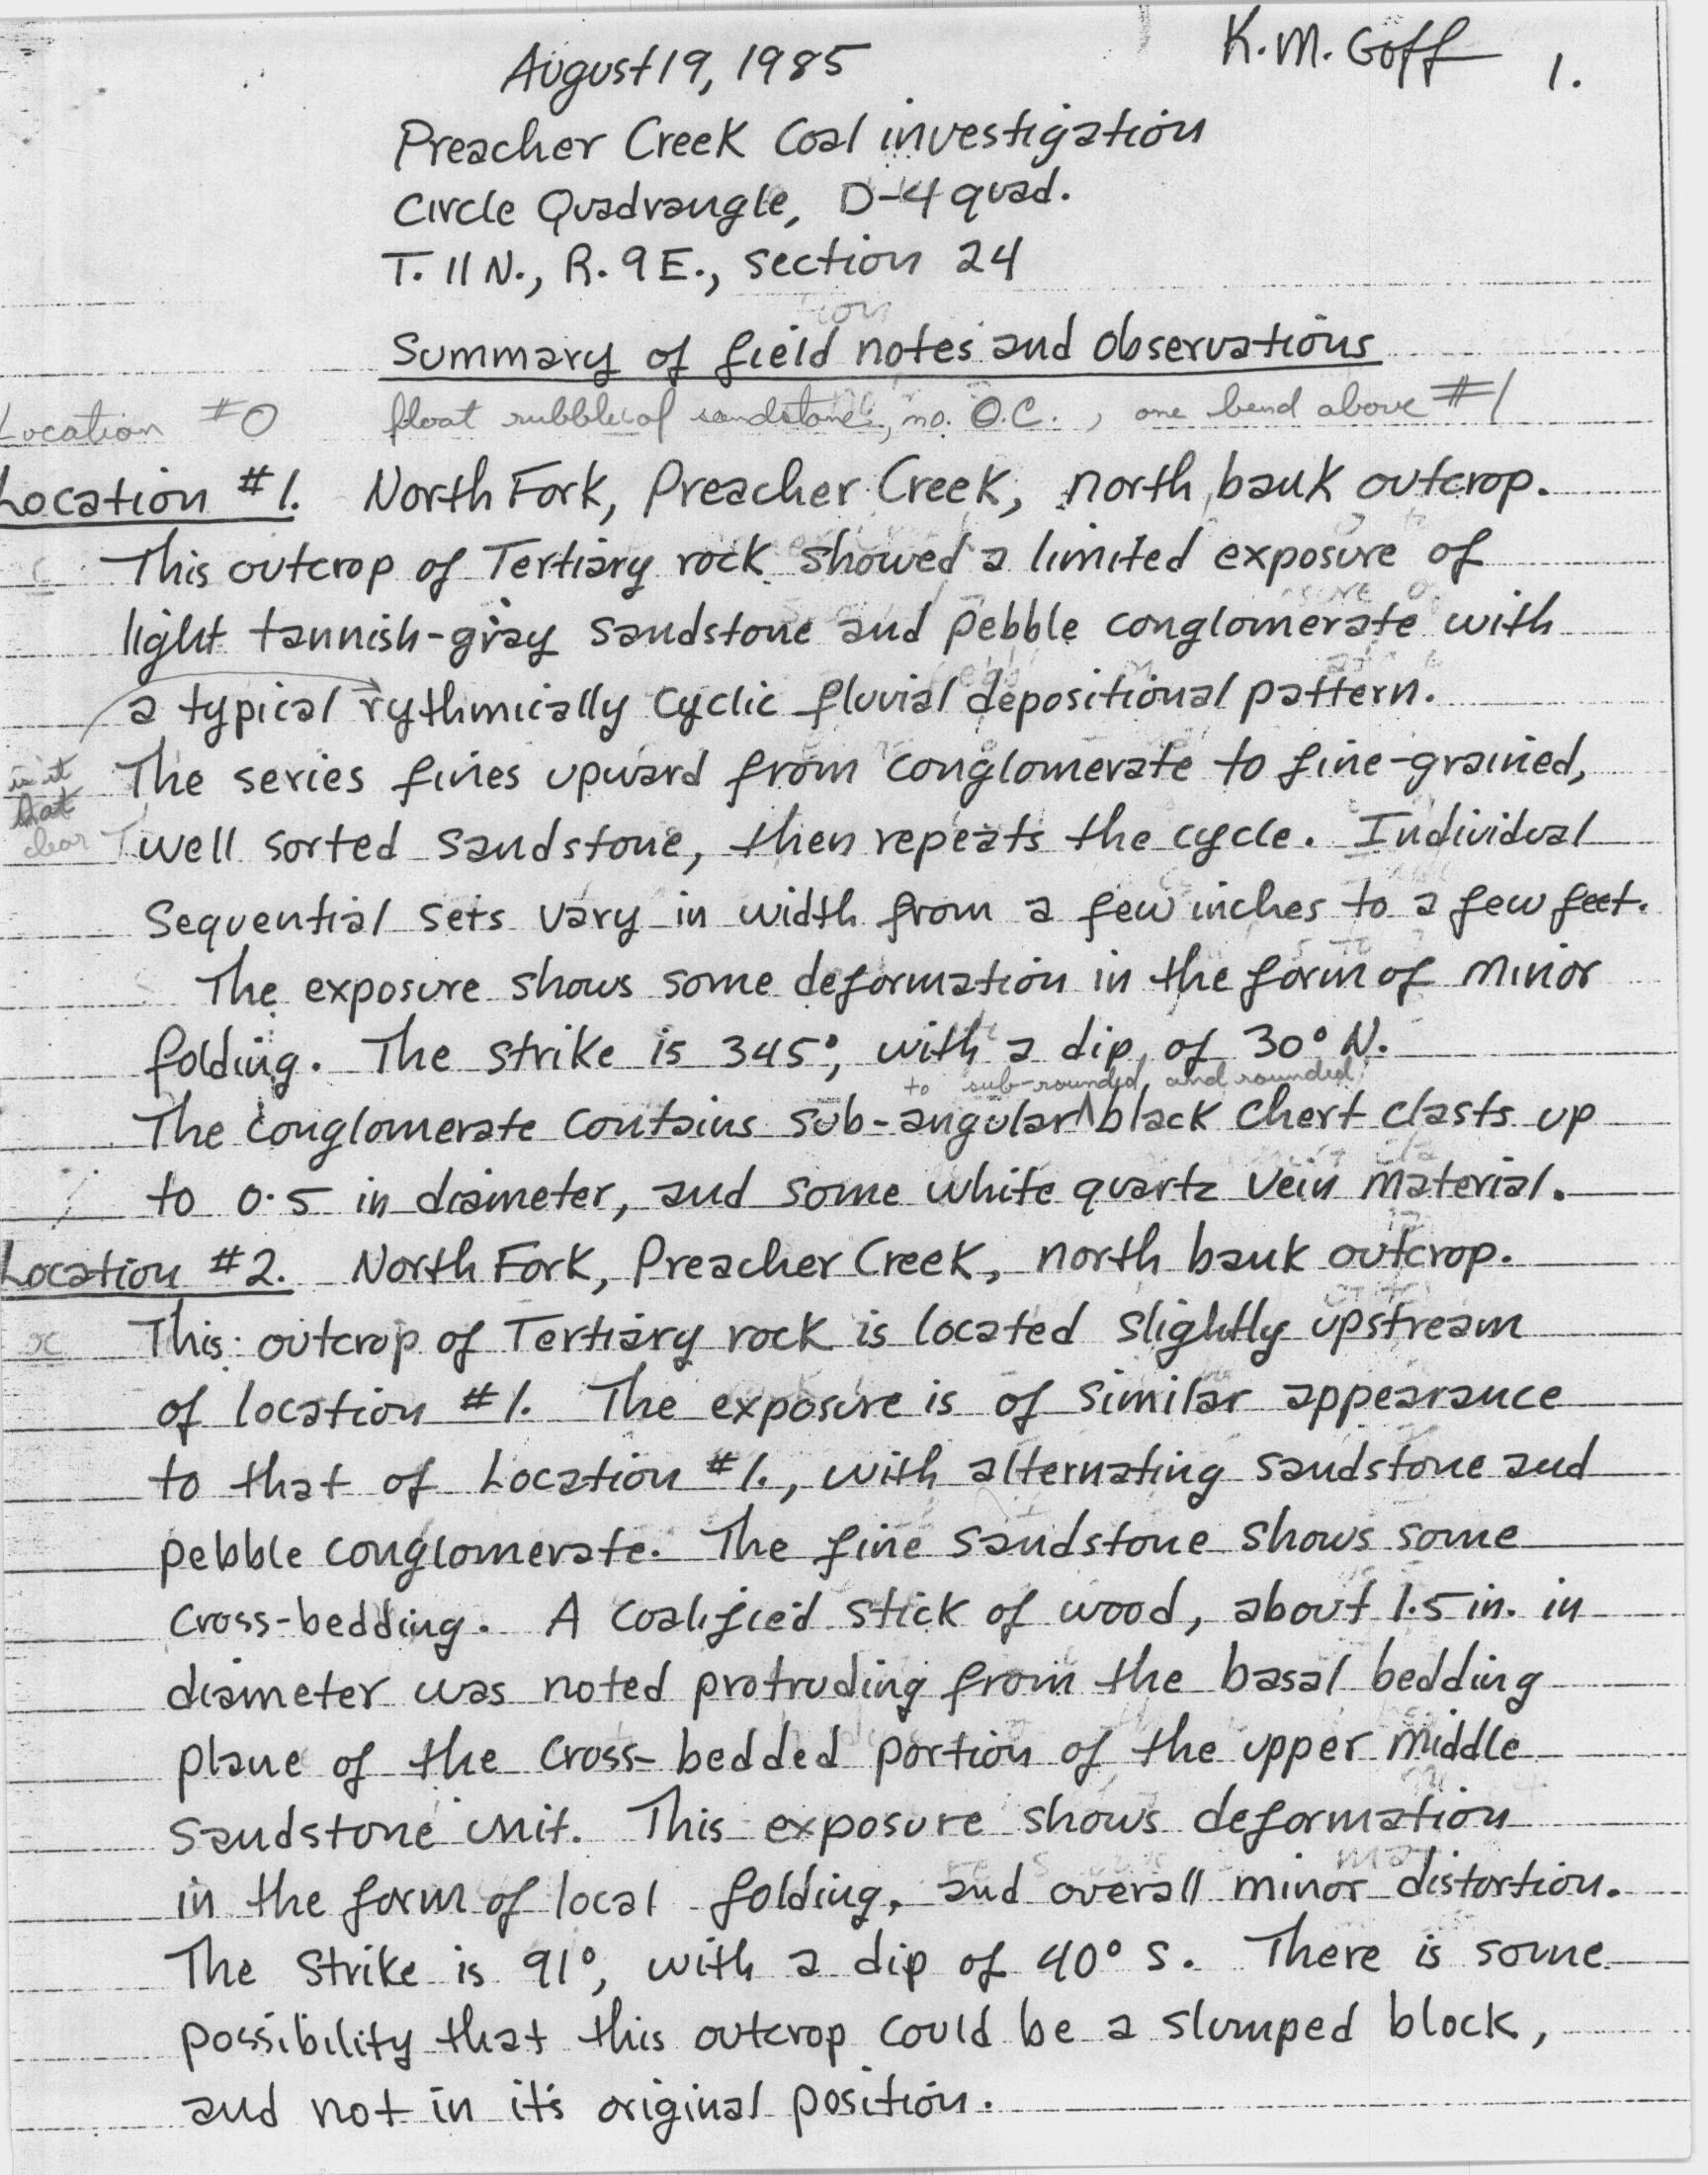 K. M. Goff
1.
August 19, 1985
Preacher Creek Coal investigation
Circle Quadrangle, D-4 quad.
T. 11 N., R. 9 E., section 24
Summary of field notes and observations
Location #0 float rubble of sandstone, no. O.C., one bend above #1
Location #1. North Fork, Preacher Creek, north bank outcrop.
This outcrop of Tertiary rock showed a limited exposure of
light tannish-gray sandstone and pebble conglomerate with
a typical rythmically cyclic fluvial depositional pattern.
is it
that
clear
The series fines upward from conglomerate to fine-grained,
well sorted sandstone, then repeats the cycle. Individual
Sequential sets vary in width from a few inches to a few feet.
The exposure shows some deformation in the form of minor
folding. The strike is 345°, with a dip of 30° N.
to sub-rounded, and rounded
The conglomerate contains sub-angular black chert clasts up
to 0.5 in diameter, and some white quartz vein material.
Location #2. North Fork, Preacher Creek, north bank outcrop.
This outcrop of Tertiary rock is located slightly upstream
of location #1. The exposure is of similar appearance
to that of Location #1., with alternating sandstone and
pebble conglomerate. The fine sandstone shows some
cross-bedding. A coalified stick of wood, about 1.5 in. in
diameter was noted protruding from the basal bedding
plane of the cross-bedded portion of the upper middle
sandstone unit. This exposure shows deformation
in the form of local folding, and overall minor distortion.
The strike is 91°, with a dip of 40° S. There is some
possibility that this outcrop could be a slumped block,
and not in it's original position.